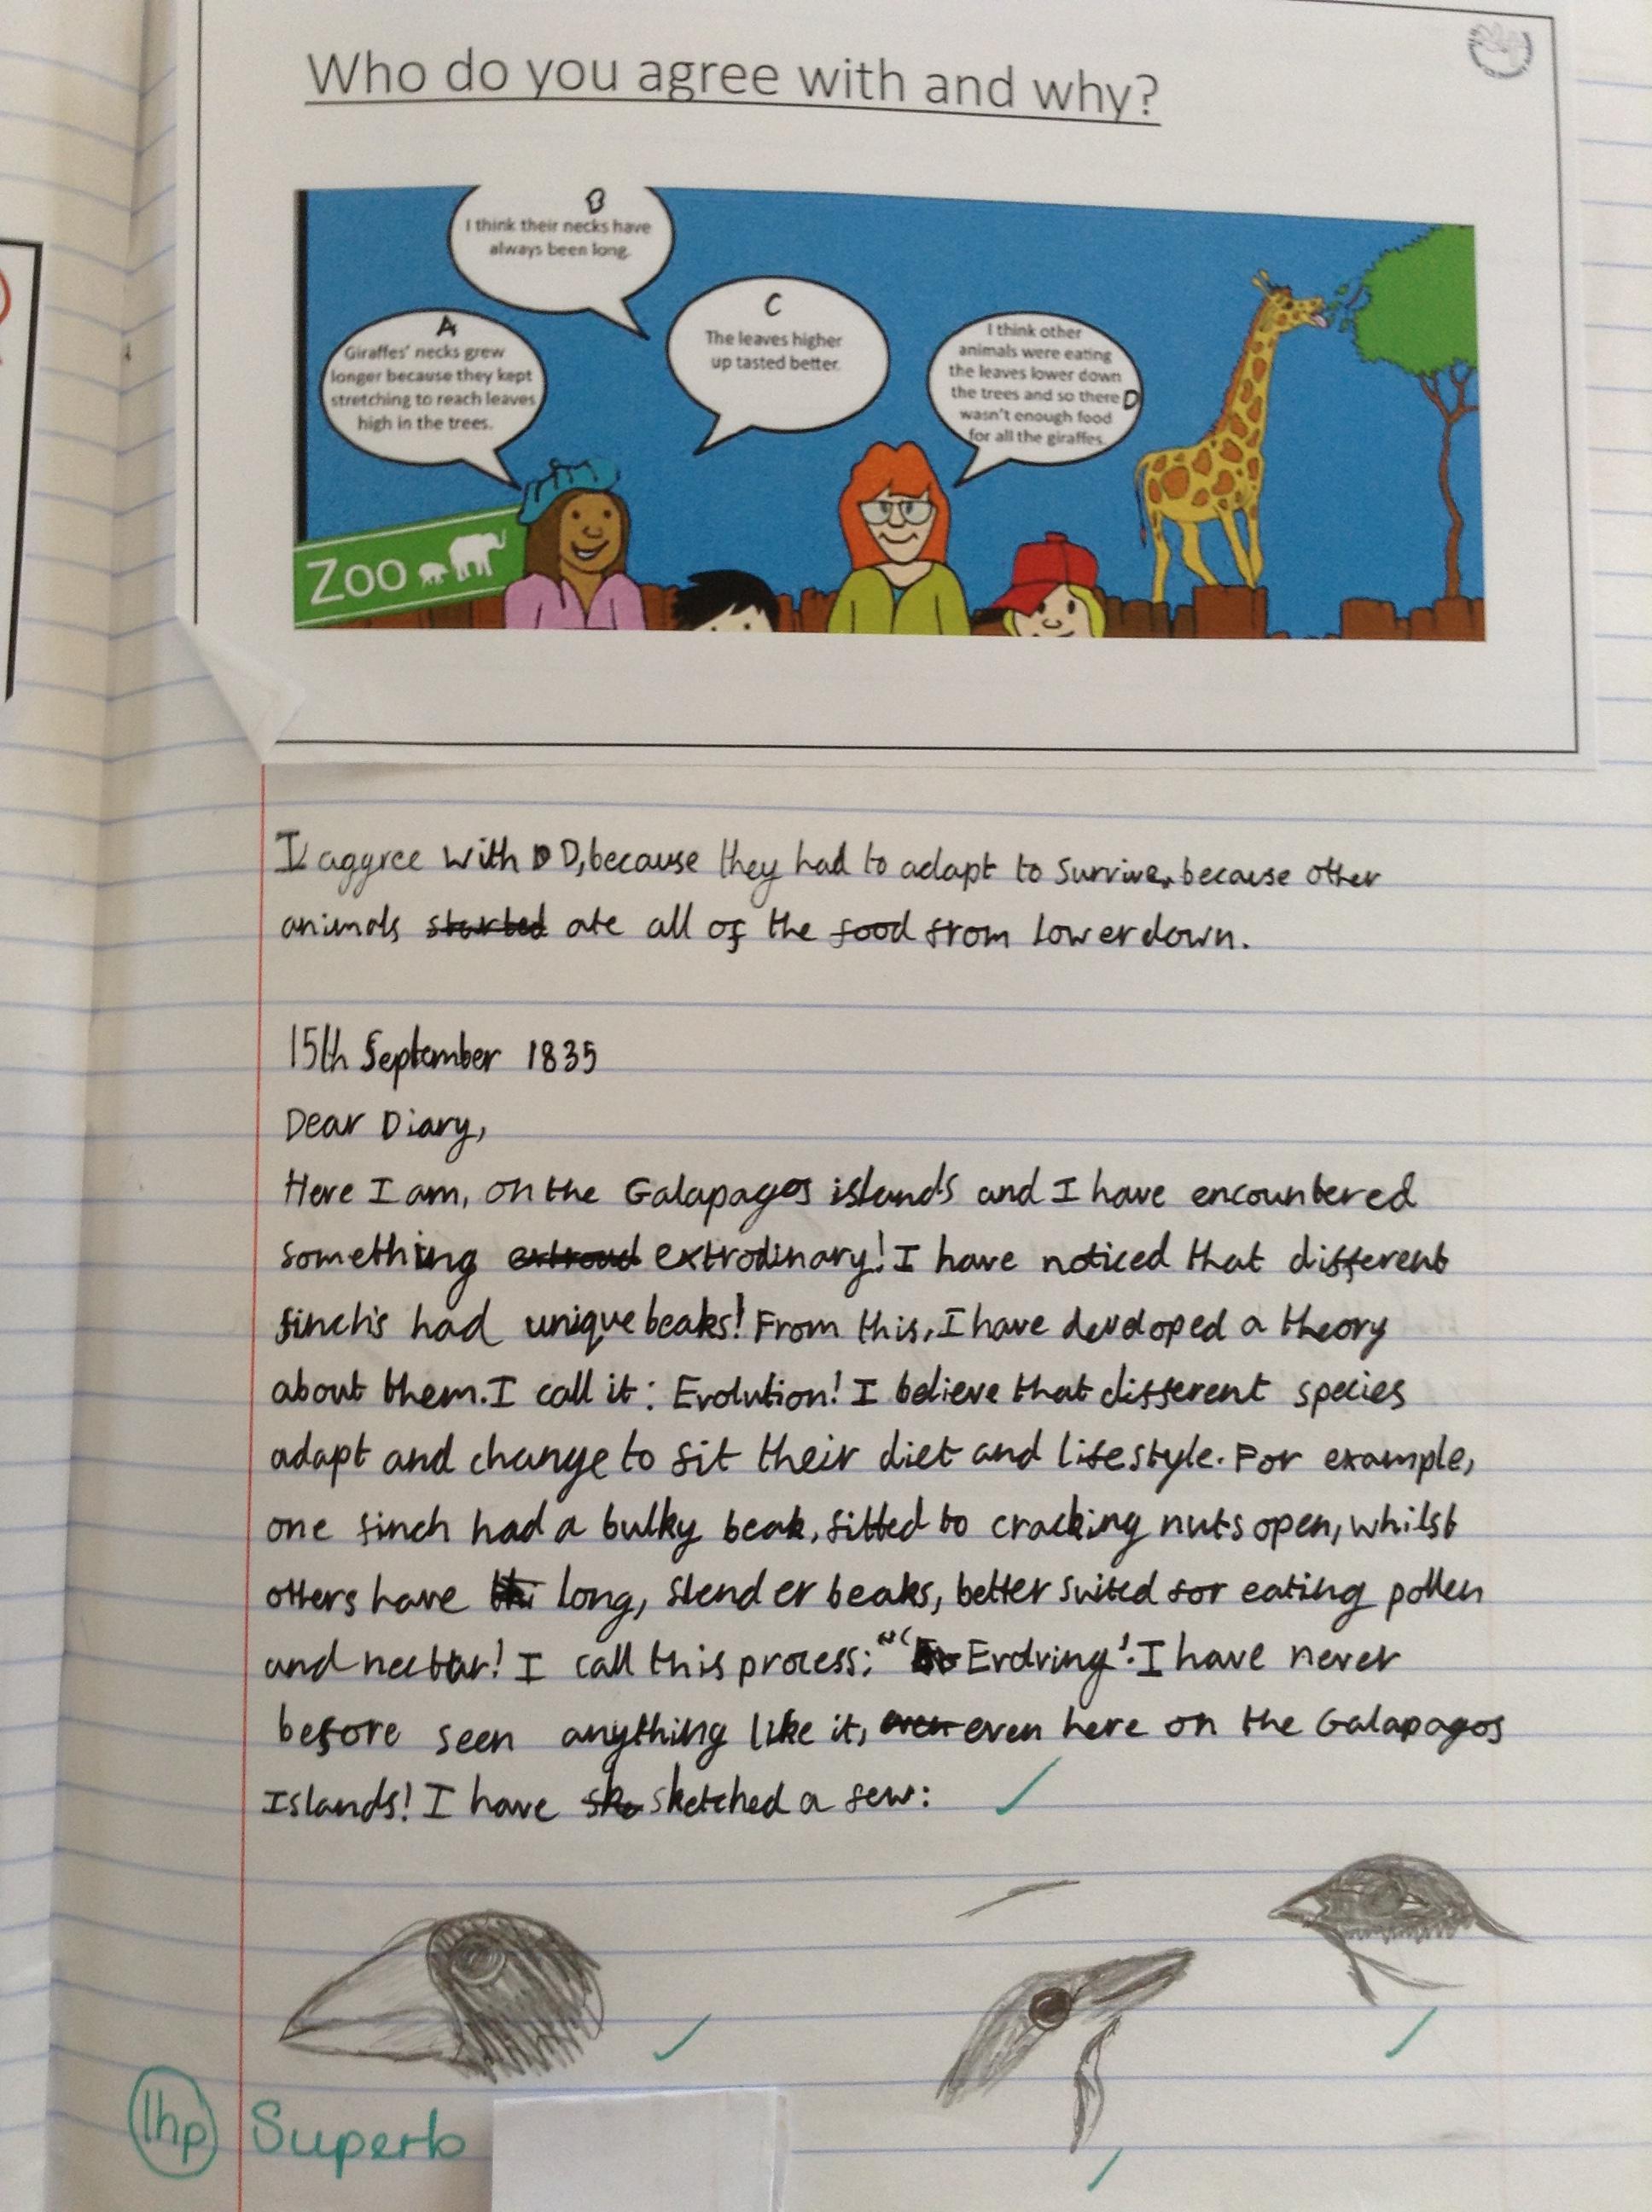 Who do you agree with and why?
B
I think their necks have
always been long.
A
Giraffes' necks grew
longer because they kept
stretching to reach leaves
high in the trees.
C
The leaves higher
up tasted better.
I think other
animals were eating
the leaves lower down
the trees and so there D
wasn't enough food
for all the giraffes.
Zoo
I aggree with D D, because they had to adapt to survive, because other
animals started ate all of the food from lower down.
15th September 1835
Dear Diary,
Here I am, on the Galapagos islands and I have encountered
something extroud extrodinary! I have noticed that different
finch's had unique beaks! From this, I have developed a theory
about them. I call it: Evolution! I believe that different species
adapt and change to fit their diet and lifestyle. For example,
one finch had a bulky beak, fitted to cracking nuts open, whilst
others have thi long, slender beaks, better suited for eating pollen
and nectar! I call this process: 'Evolving'. I have never
before seen anything like it, even even here on the Galapagos
Islands! I have ske sketched a few:
1hp Superb